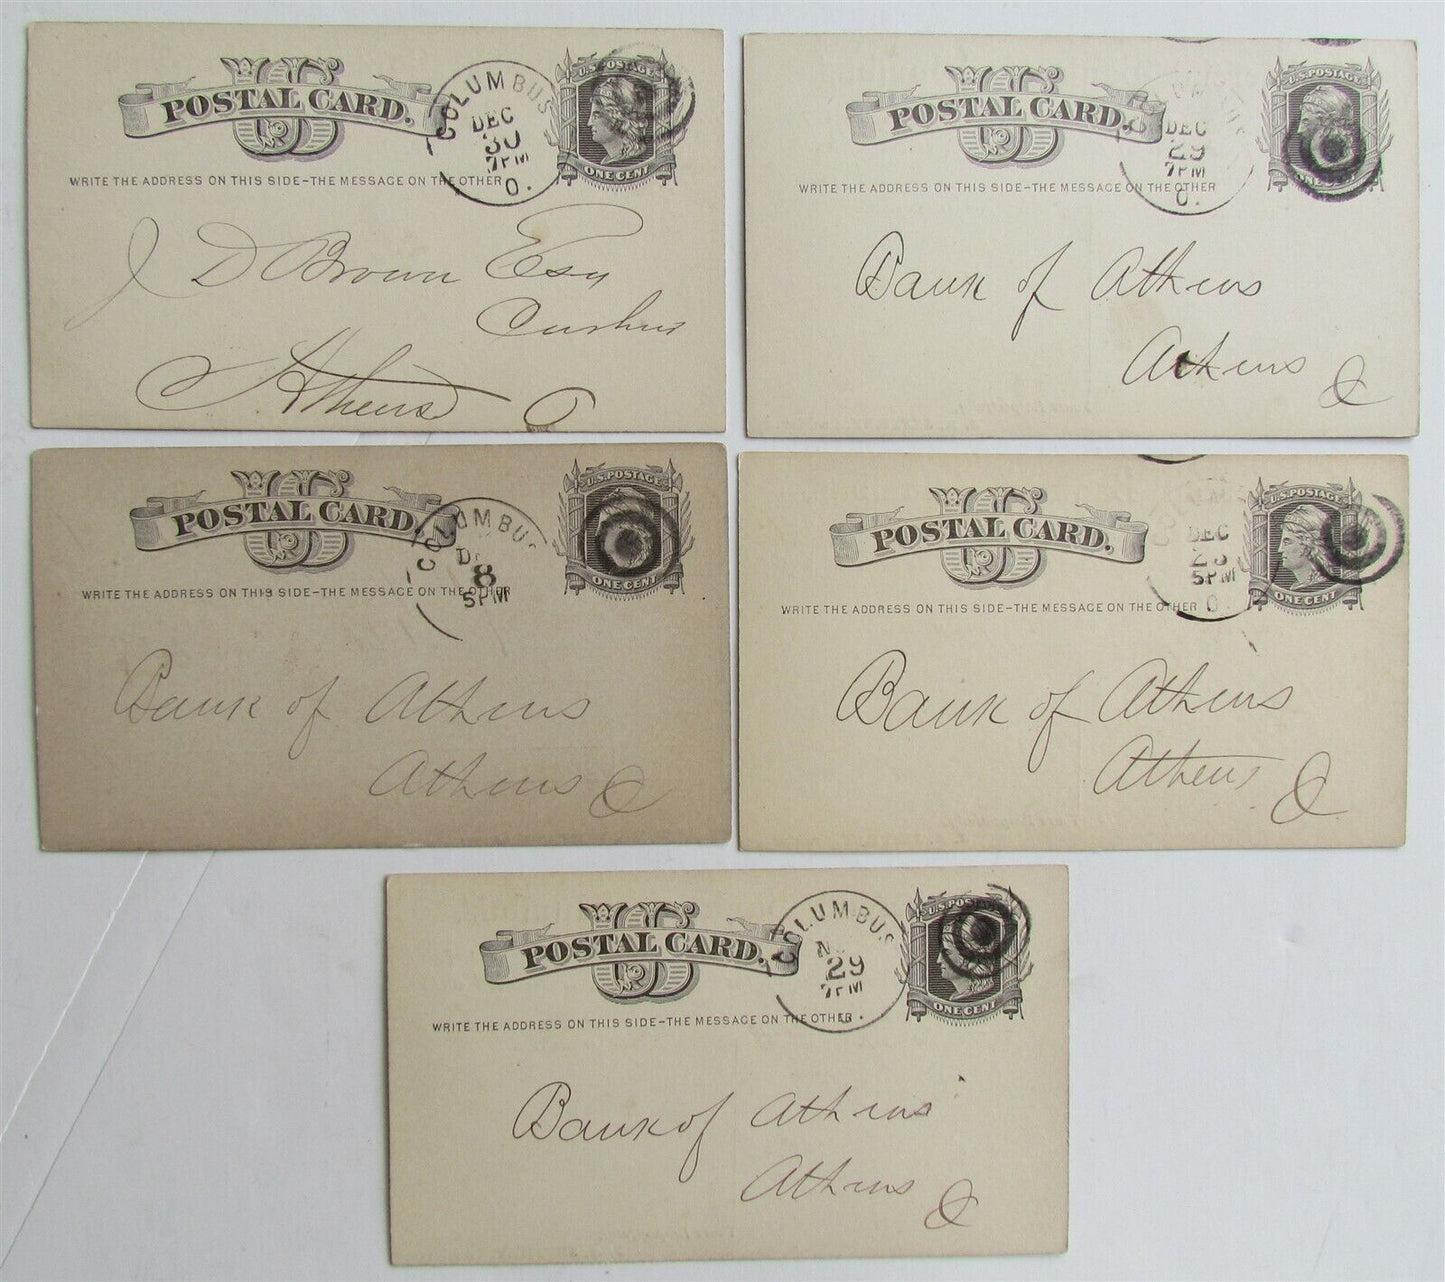 US
POSTAL CARD.
WRITE THE ADDRESS ON THIS SIDE-THE MESSAGE ON THE OTHER
COLUMBUS
DEC
30
7PM
O.
U.S. POSTAGE
ONE CENT
J D Brown Esq
Cashier
Athens O
US
POSTAL CARD.
WRITE THE ADDRESS ON THIS SIDE-THE MESSAGE ON THE OTHER
DEC
29
7PM
O.
U.S. POSTAGE
ONE CENT
Bank of Athens
Athens O
US
POSTAL CARD.
WRITE THE ADDRESS ON THIS SIDE-THE MESSAGE ON THE OTHER
COLUMBUS
8
5PM
U.S. POSTAGE
ONE CENT
Bank of Athens
Athens O
US
POSTAL CARD.
WRITE THE ADDRESS ON THIS SIDE-THE MESSAGE ON THE OTHER
DEC
5PM
O.
U.S. POSTAGE
ONE CENT
Bank of Athens
Athens O
US
POSTAL CARD.
WRITE THE ADDRESS ON THIS SIDE-THE MESSAGE ON THE OTHER
COLUMBUS
29
7PM
U.S. POSTAGE
ONE CENT
Bank of Athens
Athens O